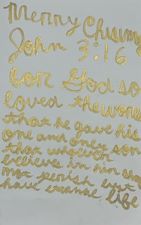 Merry Chrism
John 3:16
for God so
loved the world
that he gave his
one and only son
that whoever
believe in him shall
not perish but
have eternal life